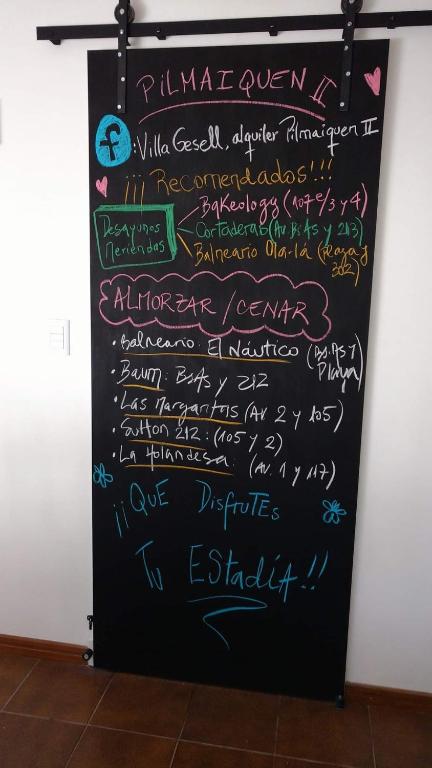 PILMAIQUEN II
f : Villa Gesell, alquiler Pilmaiquen II
¡¡¡ Recomendados!!!
Desayunos
Meriendas
Bakeology (107 e/3 y 4)
Cortaderas (Av. Bs As y 213)
Balneario Ola-lá (Playa y 302)
ALMORZAR / CENAR
• Balneario: El Náutico (Bs. As y Playa)
• Baum: BsAs y 212
• Las Margaritas (Av 2 y 105)
• Sutton 212: (105 y 2)
• La Holandesa: (Av. 1 y 117)
¡¡QUE DisfruTEs
Tu EStadíA!!